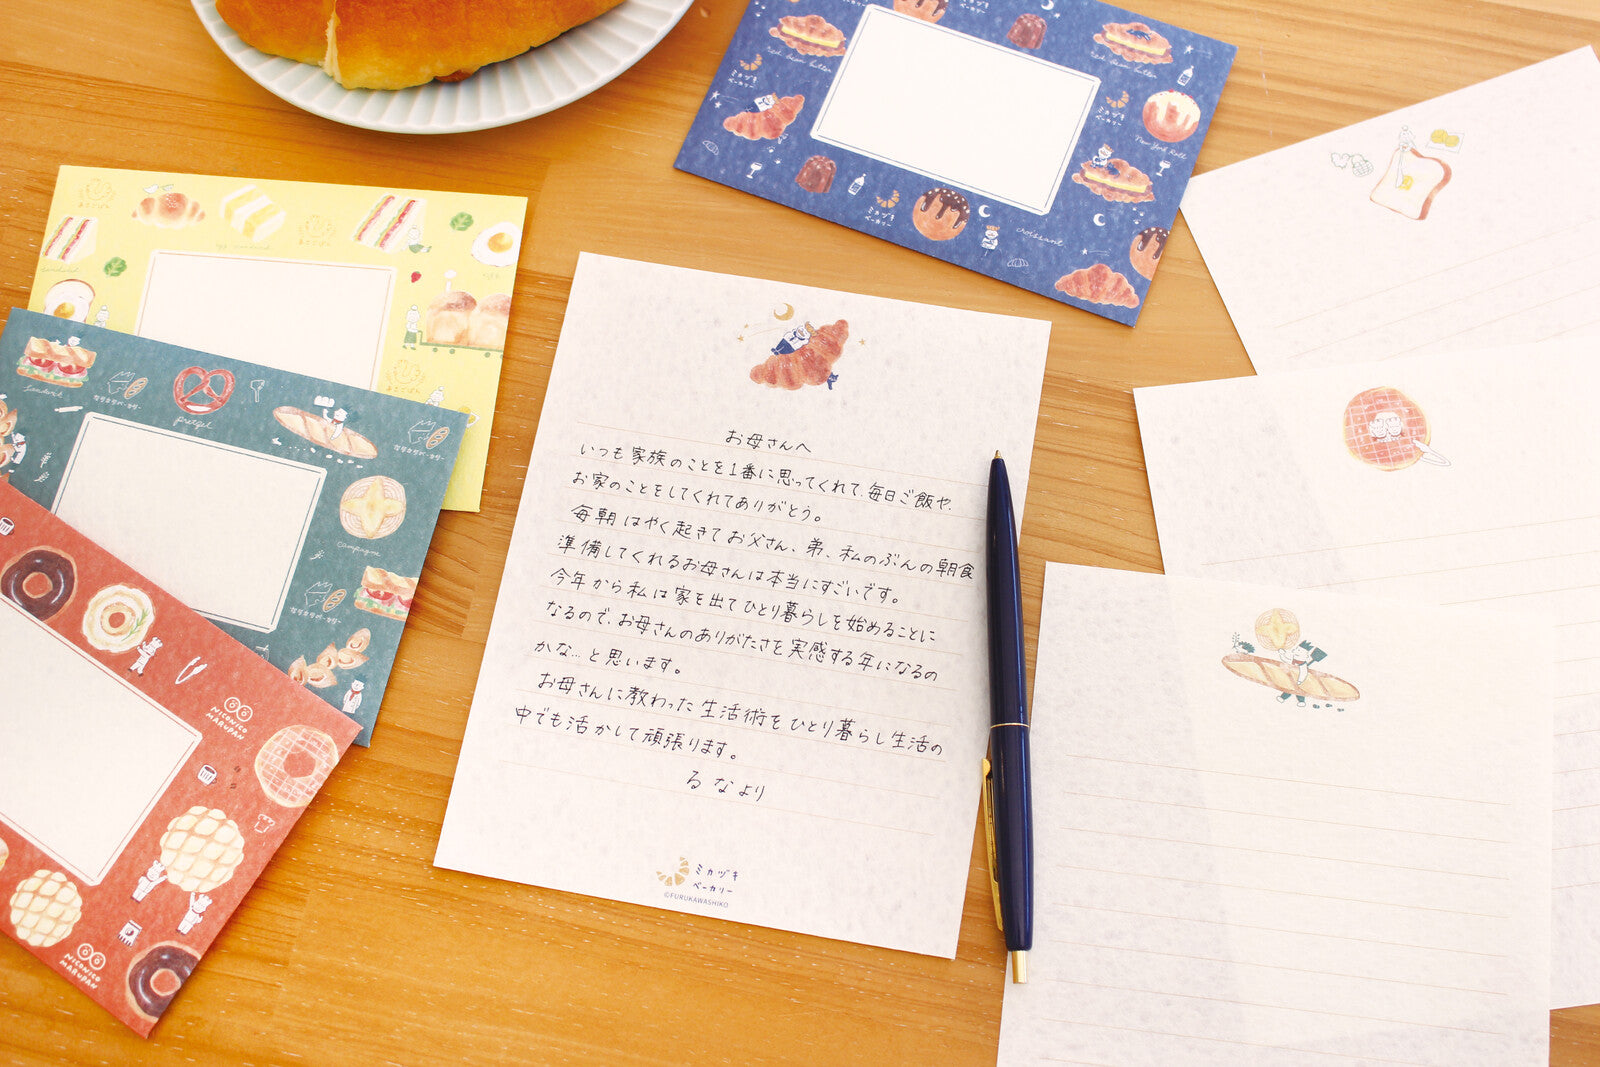 お母さんへ
いつも家族のことを1番に思ってくれて、毎日ご飯や、
お家のことをしてくれてありがとう。
毎朝はやく起きてお父さん、弟、私のぶんの朝食
準備してくれるお母さんは本当にすごいです。
今年から私は家を出てひとり暮らしを始めることに
なるので、お母さんのありがたさを実感する年になるの
かな…と思います。
お母さんに教わった生活術をひとり暮らし生活の
中でも活かして頑張ります。
るなより
ミカヅキ
ベーカリー
©FURUKAWASHIKO
red bean butter
ミカヅキ
ベーカリー
red bean butter
ミカヅキ
ベーカリー
New York Roll
ミカヅキ
ベーカリー
croissant
まるごぱん
まるごぱん
まるごぱん
sandwich
pretzel
campagne
NICONICO
MARUPAN
NICONICO
MARUPAN